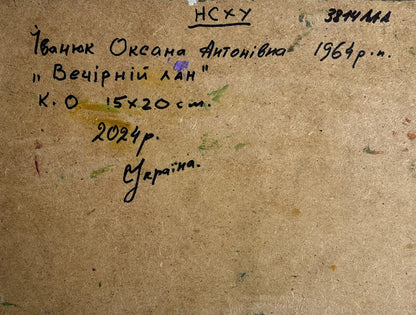 НСХУ 3814АА
Іванюк Оксана Антонівна 1964р.н.
„Вечірній лан"
К.О 15х20см.
2024р.
Україна.